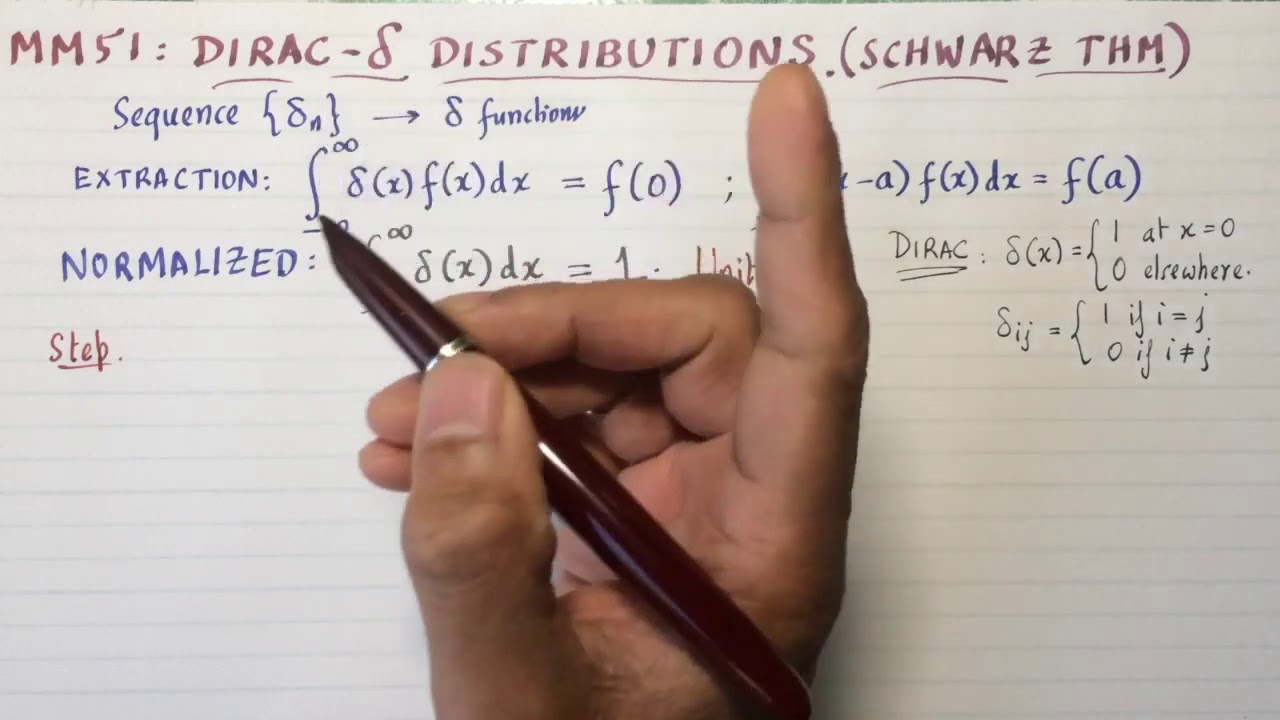 MM51: DIRAC-δ DISTRIBUTIONS. (SCHWARZ THM)
Sequence {δn} → δ function
EXTRACTION: ∫ ∞ δ(x) f(x) dx = f(0) ; -a) f(x) dx = f(a)
NORMALIZED: ∞ δ(x) dx = 1. Unit
DIRAC: δ(x) = { 1 at x=0
0 elsewhere.
δij = { 1 if i=j
0 if i≠j
Step.